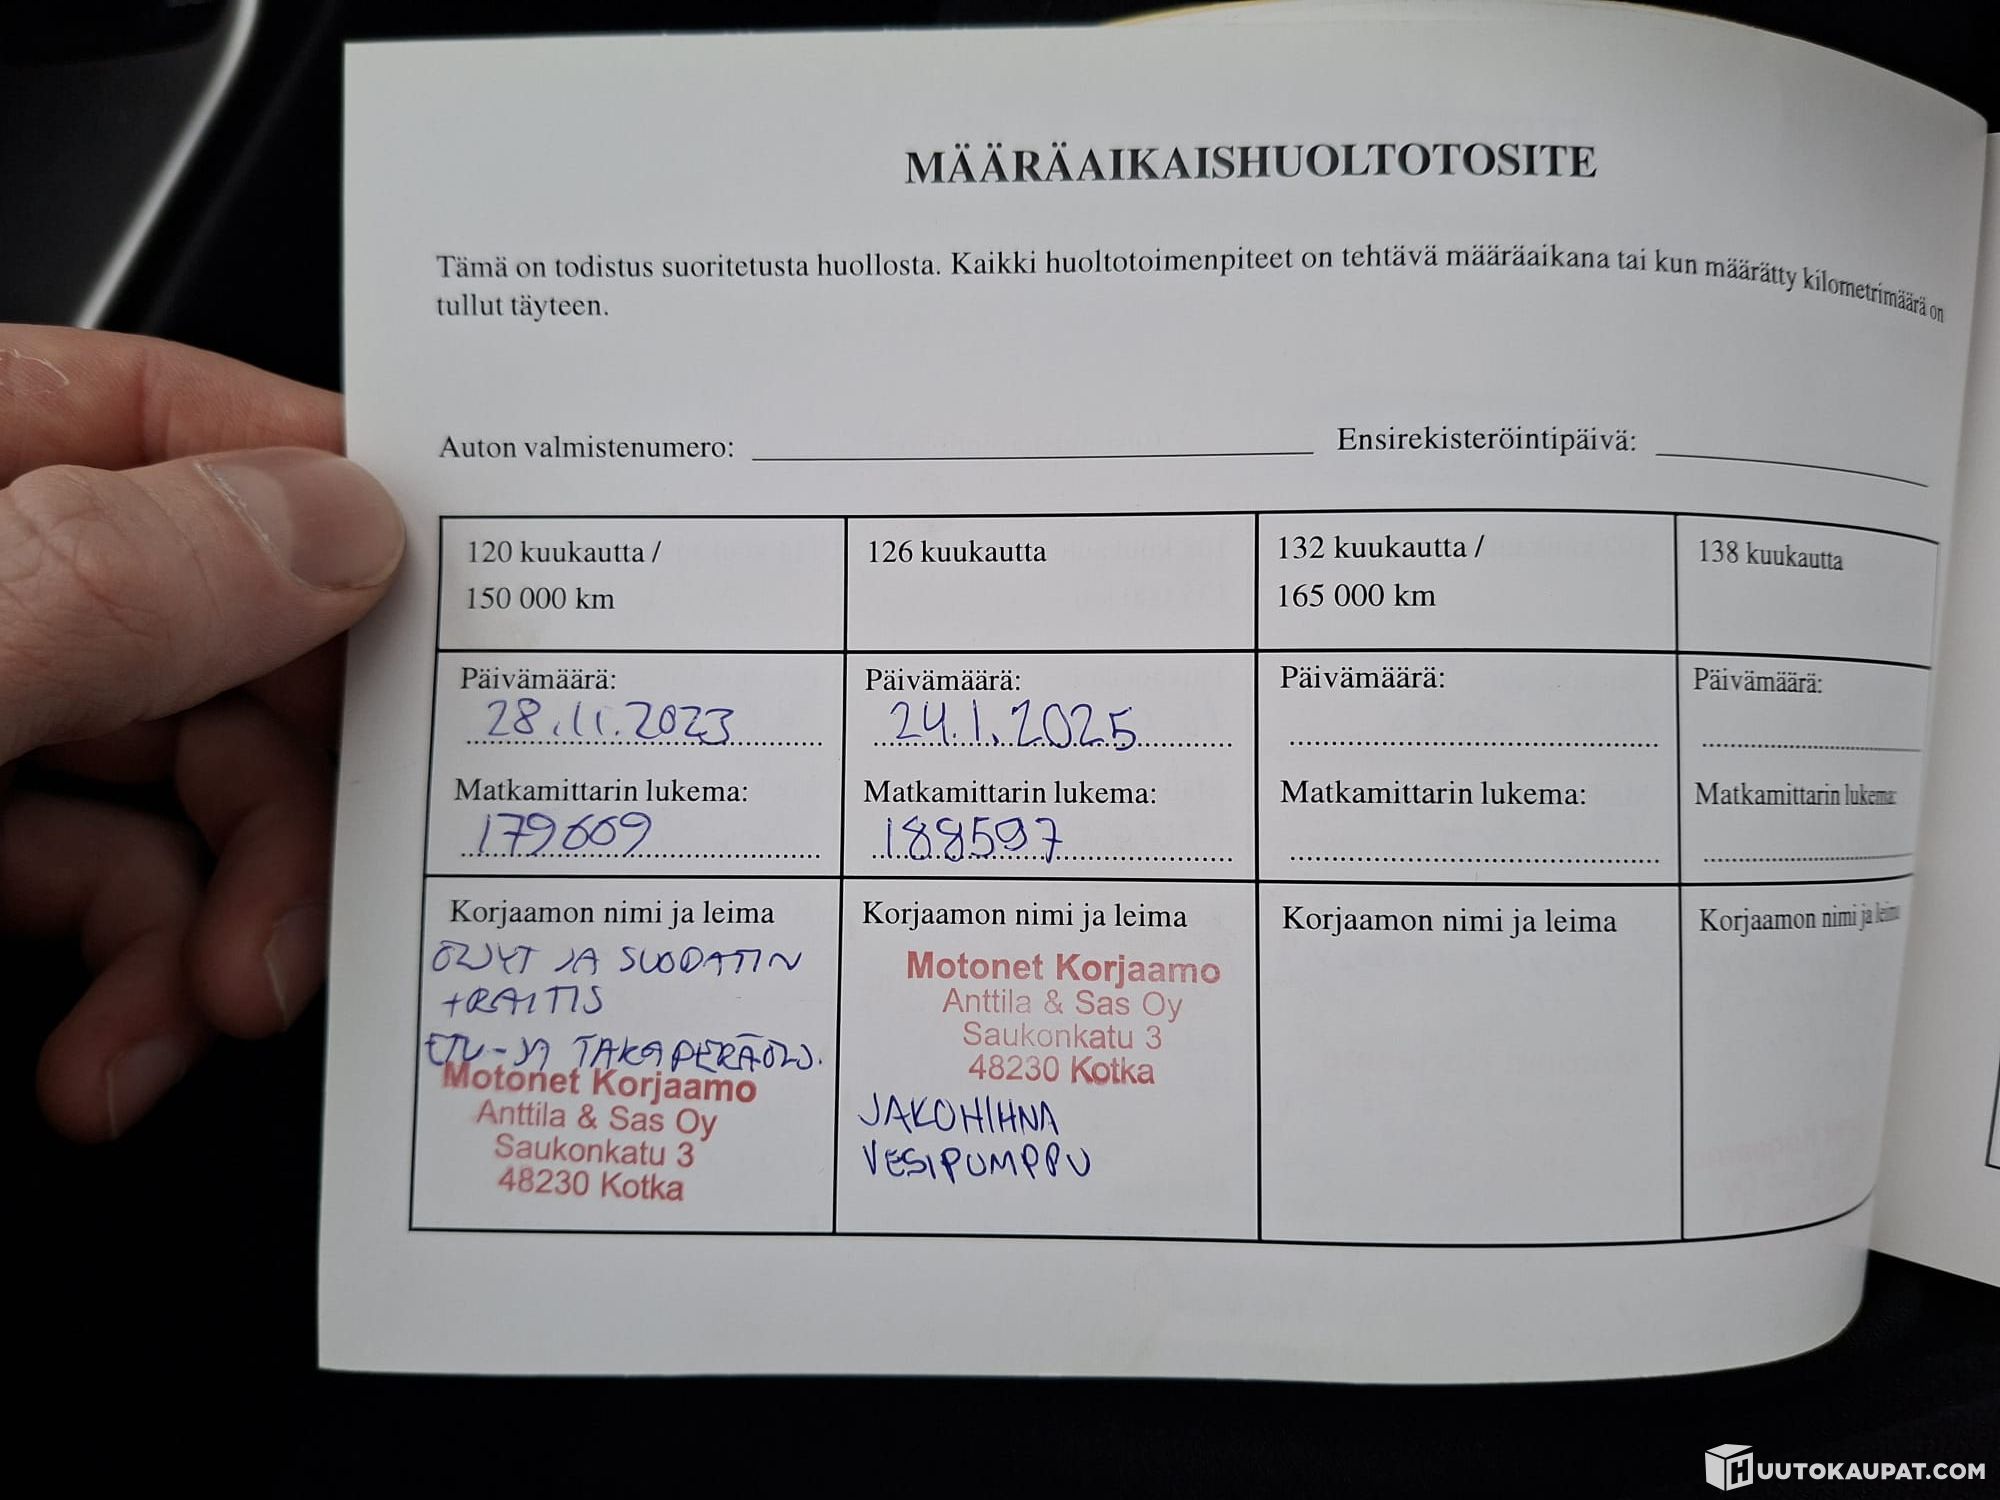 MÄÄRÄAIKAISHUOLTOTOSITE
Tämä on todistus suoritetusta huollosta. Kaikki huoltotoimenpiteet on tehtävä määräaikana tai kun määrätty kilometrimäärä on
tullut täyteen.
Auton valmistenumero:
Ensirekisteröintipäivä:
120 kuukautta /
150 000 km
Päivämäärä:
28.11.2023
Matkamittarin lukema:
179609
Korjaamon nimi ja leima
ÖLJYT JA SUODATIN
+RAITIS
ETU-JA TAKAPERÄÖLJ.
Motonet Korjaamo
Anttila & Sas Oy
Saukonkatu 3
48230 Kotka
126 kuukautta
Päivämäärä:
24.1.2025
Matkamittarin lukema:
188597
Korjaamon nimi ja leima
Motonet Korjaamo
Anttila & Sas Oy
Saukonkatu 3
48230 Kotka
JAKOHIHNA
VESIPUMPPU
132 kuukautta /
165 000 km
Päivämäärä:
Matkamittarin lukema:
Korjaamon nimi ja leima
138 kuukautta
Päivämäärä:
Matkamittarin lukema:
Korjaamon nimi ja leima
HUUTOKAUPAT.COM